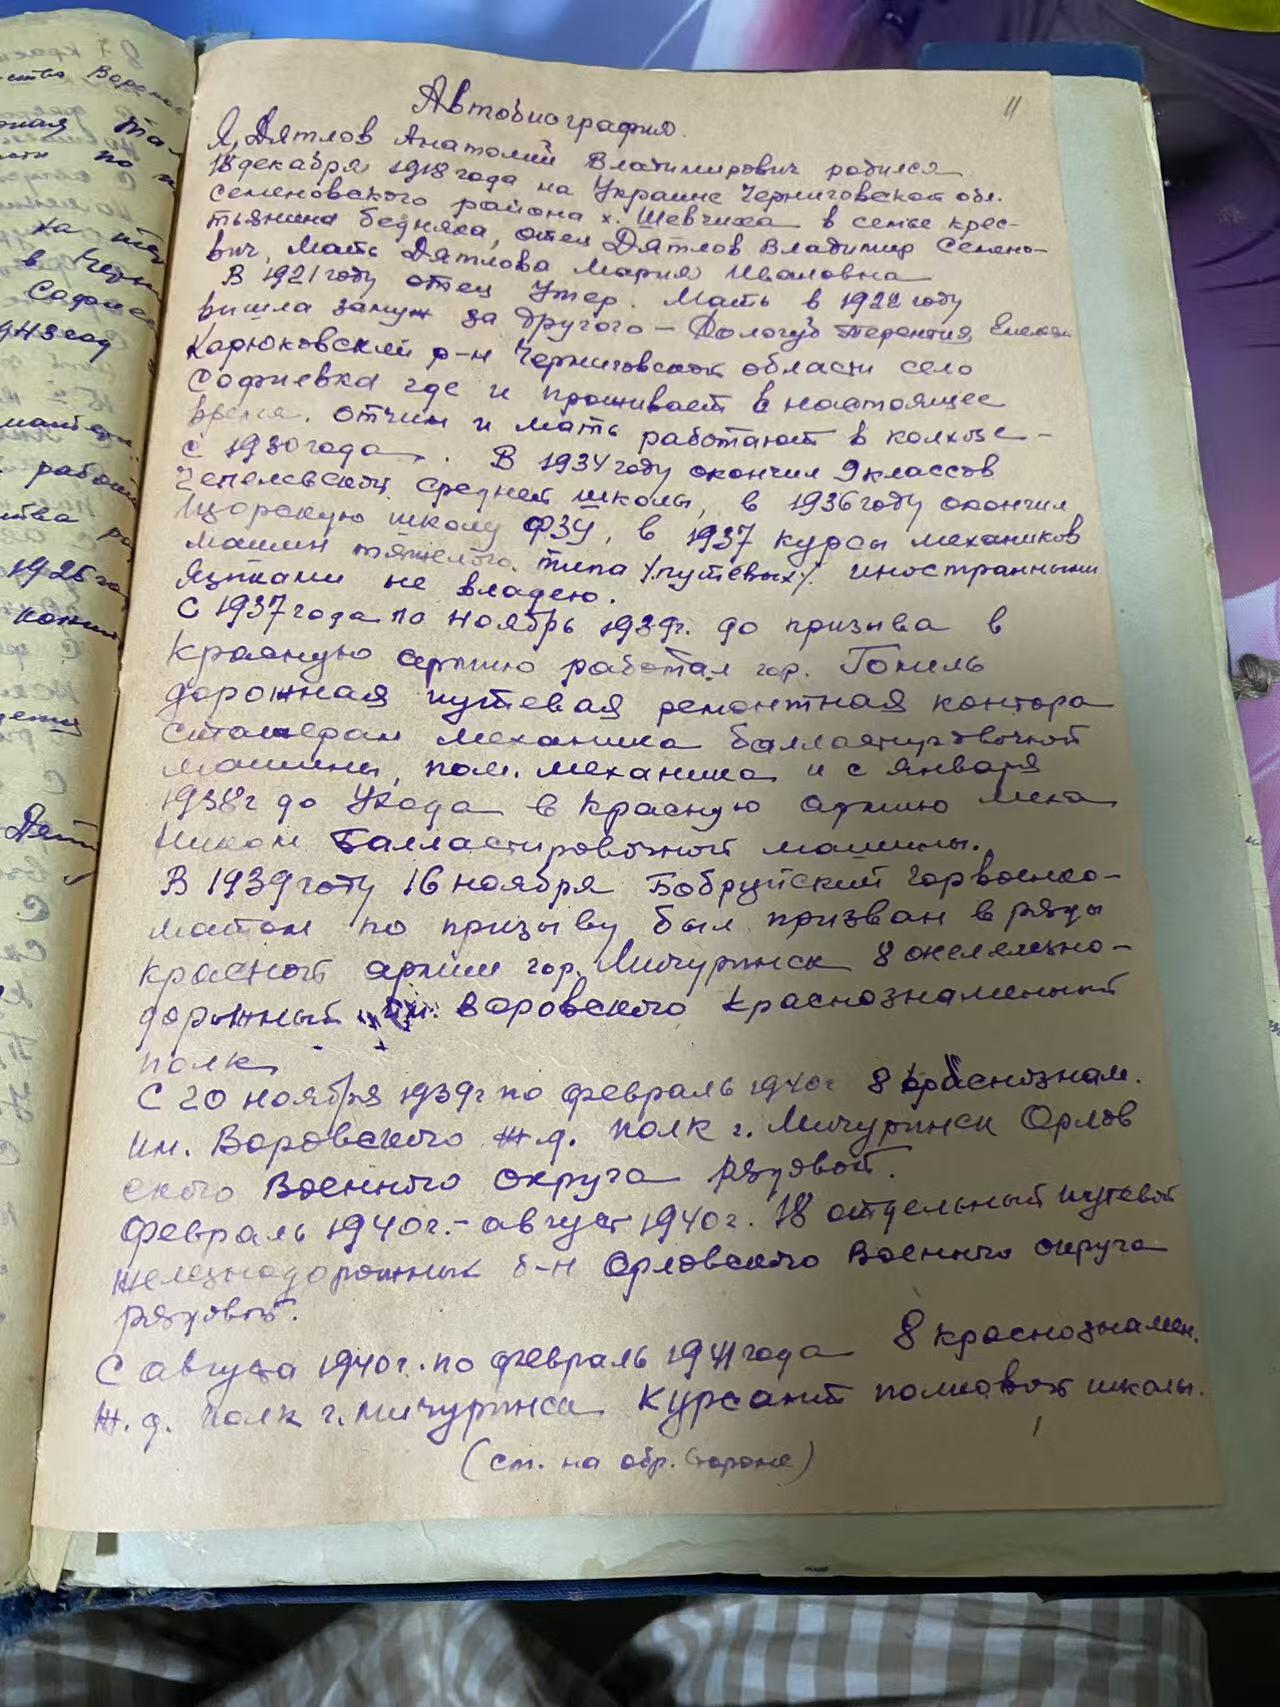 11
Автобиография.
Я, Дятлов Анатолий Владимирович родился
18 декабря 1918 года на Украине Черниговской обл.
Семеновского района х. Шевчиха в семье крес-
тьянина бедняка, отец Дятлов Владимир Семено-
вич, мать Дятлова Мария Ивановна
В 1921 году отец умер. Мать в 1922 году
вышла замуж за другого – Дологуб Терентия
Карюковский р-н Черниговской области село
Софиевка где и проживает в настоящее
время. отчим и мать работают в колхозе –
с 1930 года. В 1934 году окончил 9 классов
средней школы, в 1936 году окончил
Щорскую школу ФЗУ, в 1937 курсы механиков
машин тяжелого типа /путевых/. иностранными
языками не владею.
С 1937 года по ноябрь 1939г. до призыва в
Красную армию работал гор. Гомель
дорожная путевая ремонтная контора
стажером механика балластировочной
машины, пом. механика и с января
1938г до ухода в Красную армию меха
ником балластировочной машины.
В 1939 году 16 ноября Бобруйский горвоенко-
матом по призыву был призван в ряды
красной армии гор. Мичуринск 8 железно-
дорожный им. Воровского Краснознаменный
полк
С 20 ноября 1939г по февраль 1940г 8 краснознам.
им. Воровского ж.д. полк г. Мичуринск Орлов
ского Военного округа рядовой.
Февраль 1940г. – август 1940г. 18 отдельный путевой
железнодорожный б-н Орловского Военного округа
рядовой.
С августа 1940г. по февраль 1941 года 8 краснознамен.
ж.д. полк г. Мичуринск Курсант полковой школы.
(см. на обр. стороне)